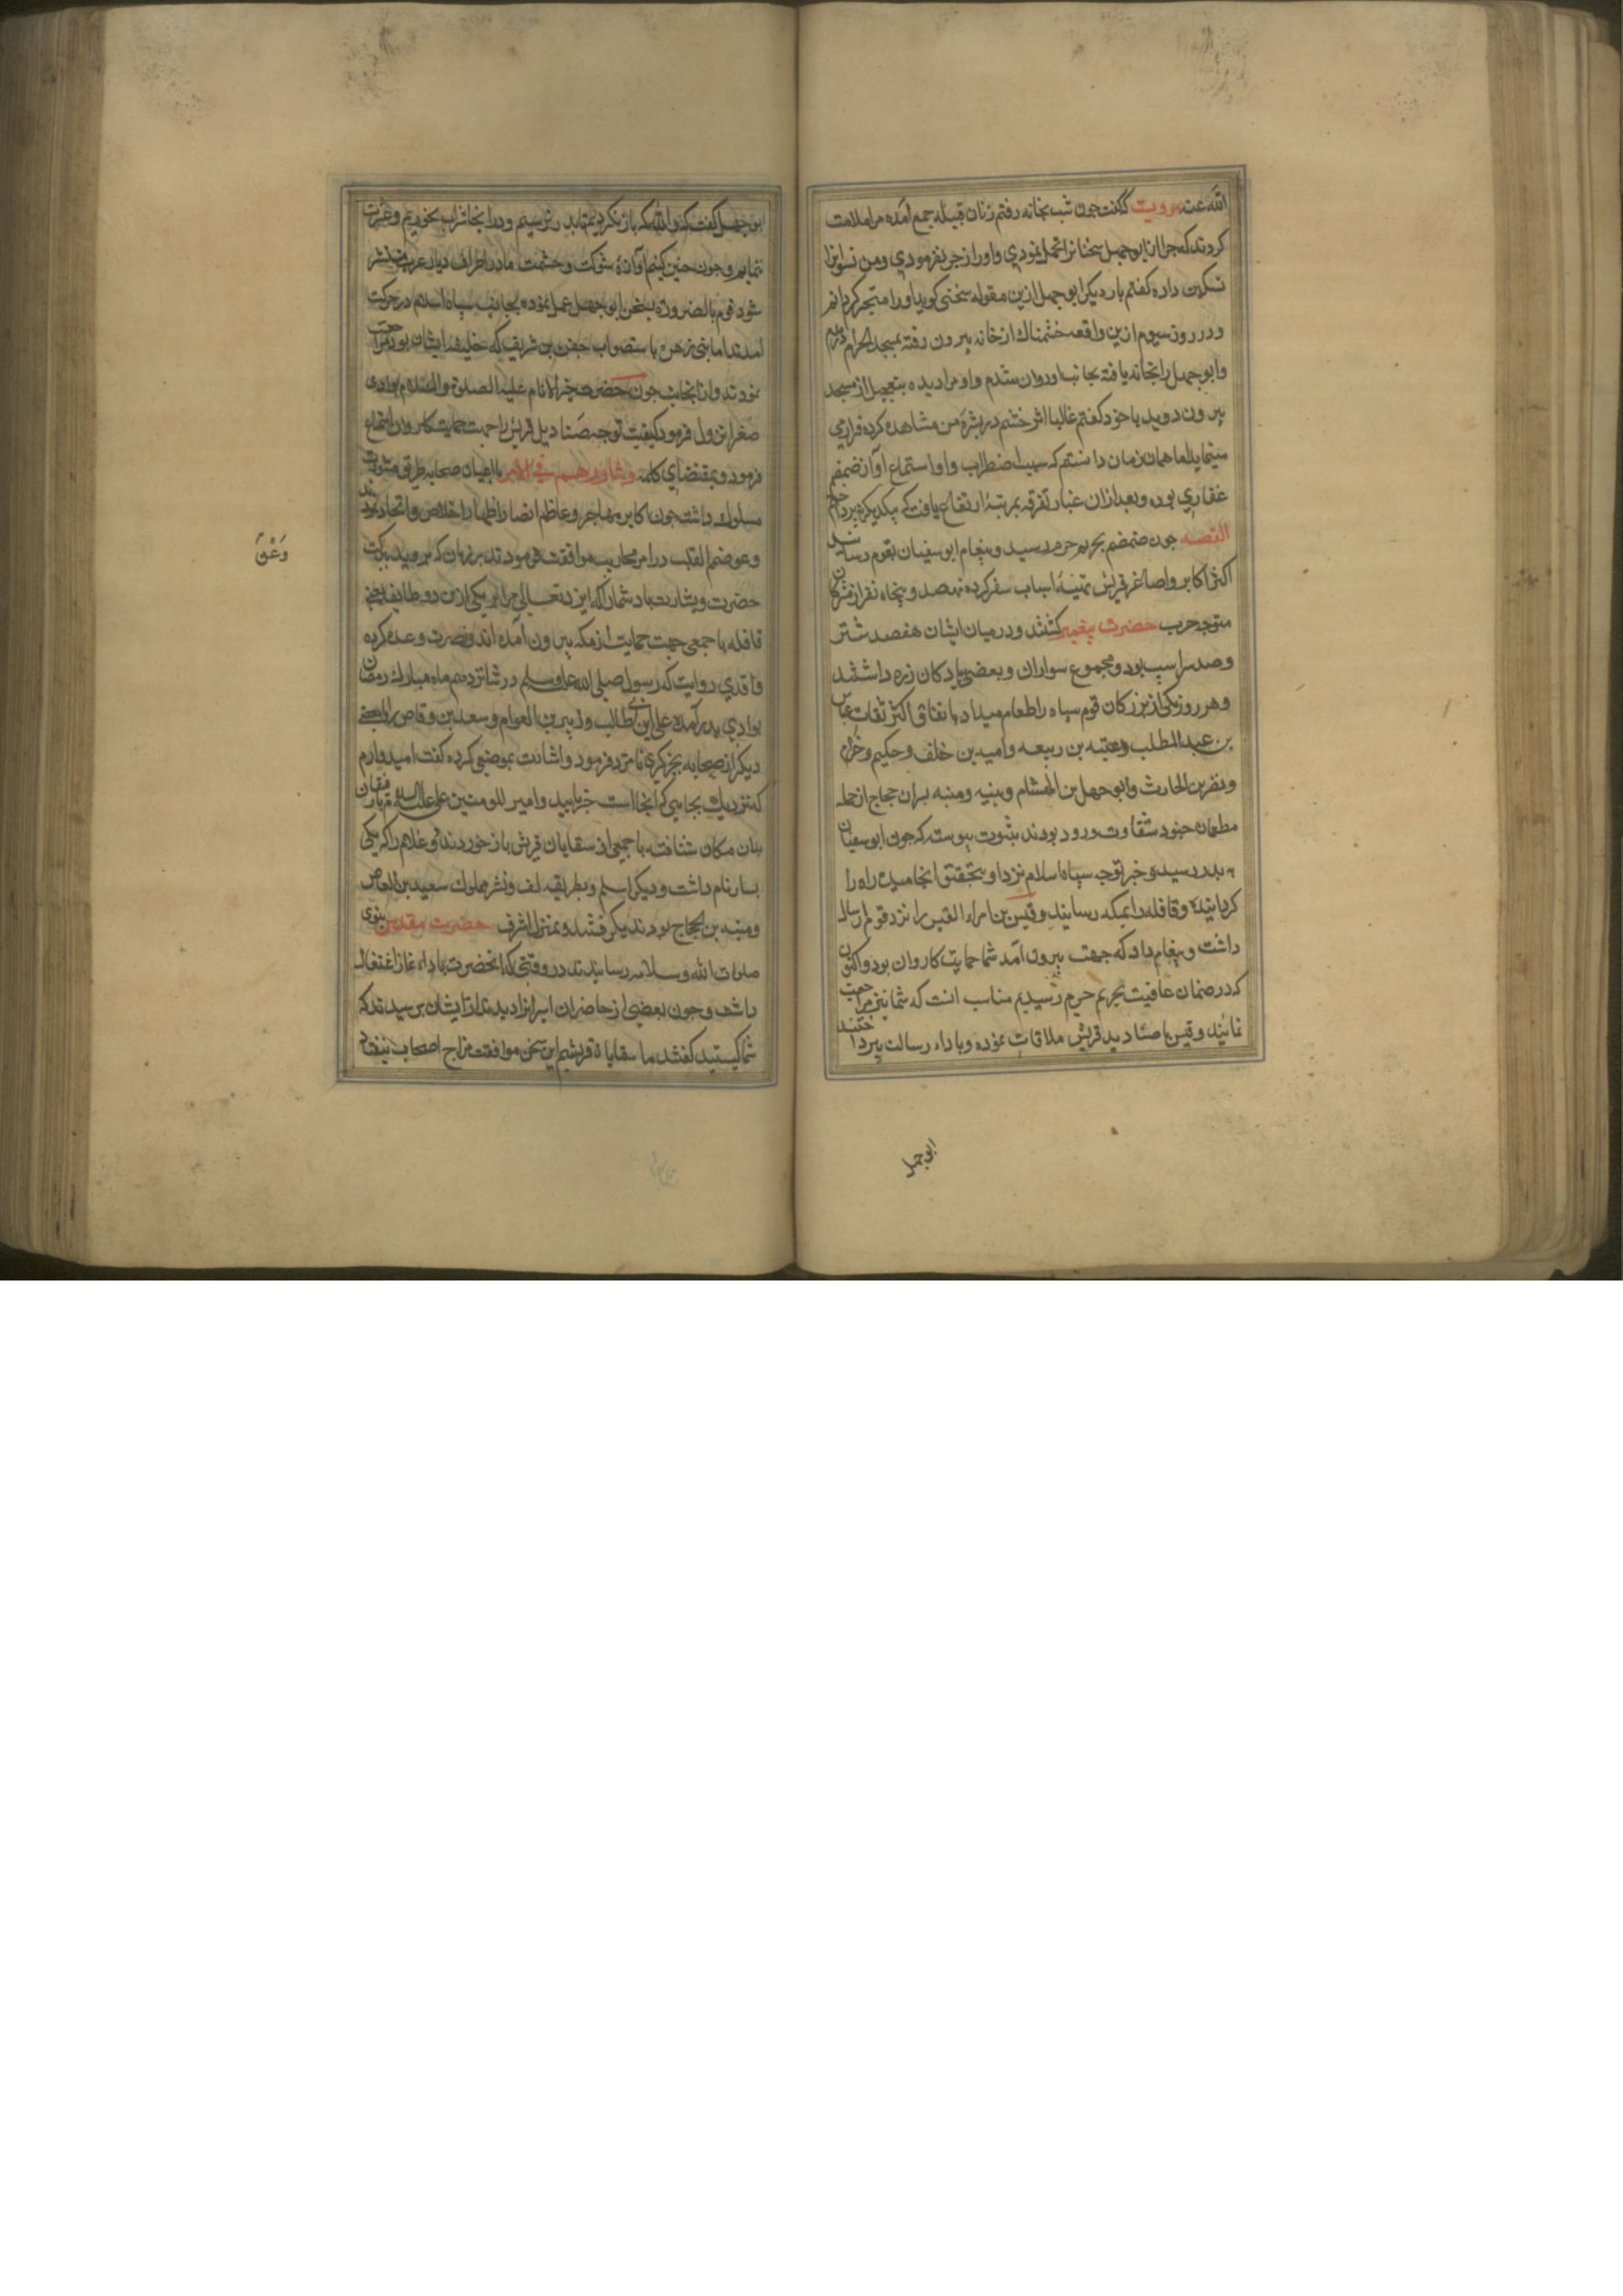 الله عنه مرویست که گفت چون شب بخانه رفتم زنان قبیله جمع آمده مرا ملامت
کردند که چرا از ابوجهل سخنانرا تحمل نمودی و او را زجر نفرمودی ومن نسوانرا
تسکین داده گفتم بار دیگر ابوجهل ازین مقوله سخنی گوید او را متجر گردانم
ودر روز سیوم ازین واقعه خشمناک از خانه بیرون رفته بمسجد الحرام درآمدم
وابوجهل را بخانه یافته بجانب او روان شدم واو مرا دیده بتعجیل از مسجد
بیرون دوید با خود گفتم غالبا اثر خشم در بشرهٔ من مشاهده کرده فراری
مینماید اما همان زمان دانستم که سبب اضطراب واو استماع آواز ضمضم
غفاری بوده وبعد ازان غبار تفرقه بمرتبهٔ ارتفاع یافت که بیکدیگر نپرداختیم
القصه چون ضمضم بحریم حرم رسید وپیغام ابوسفیان بقوم رسانید
اکثر اکابر واصاغر قریش تهیهٔ اسباب سفر کرده نهصد وپنجاه نفر از مشرکان
متوجه حرب حضرت پیغمبر گشتند ودرمیان ایشان هفصد شتر
وصد سر اسپ بود ومجموع سواران وبعضی پیادکان زره داشتند
وهر روز یکی از بزرکان قوم سپاه را طعام میداد باتفاق اکثر ثقات عباس
بن عبد المطلب وعتبه بن ربیعه وامیه بن خلف وحکیم وخزام
ونضر بن الحارث وابوجهل بن الهشام ونبیه ومنبه پسران حجاج ازجمله
مطعمان جنود شقاوت ورود بودند بثبوت پیوسته که چون ابوسفیان
به بدر رسید وخبر توجه سپاه اسلام نزد او بتحقیق انجامید راه را
گردانیده وقافله را بمکه رسانید وقیس بن امراء القیس را نزد قوم ارسال
داشت وپیغام داد که جهت بیرون آمد شما حمایت کاروان بود واکنون
که در ضمان عافیت بحریم حرم رسیدیم مناسب انست که شما نیز مراجعت
نمائید وقیس با صنادید قریش ملاقات نموده وباداء رسالت پرداختند
ابوجهل
ابوجهل گفت که والله که باز نگردیم تا ببدر نرسیم ودر انجا شراب بخوریم وعشرت
ننمائیم وچون چنین کنیم آوازهٔ شوکت وحشمت ما در اطراف دیار عرب منتشر
شود قوم بالضروره بسخن ابوجهل عمل نموده بجانب سپاه اسلام در حرکت
آمدند اما بنی زهره باستصواب بن شریف که حلیف ایشان بود مراجعت
نمودند وازانجانب چون حضرت خیر الانام علیه الصلوة والسلام بوادی
صفرا نزول فرمود کیفیت توجه صنادید قریش را جهت حمایت کاروان استماع
فرمود وبمقتضای کلمه وشاورهم في الامر با اعیان صحابه طریق مشورت
مسلوک داشت چون اکابر مهاجر وعاظم انصار اظهار اخلاص واتحاد نمودند
وعن صمیم القلب در امر محاربه موافقت فرمودند بر زبان که بروید ببرکت
وَعَنْ
حضرت وبشارت باد شمارا که ایزد تعالی مرا بر یکی ازین دو طایفه یعنی
قافله یا جمعی جهت حمایت از مکه بیرون آمده اند ونصرت وعده کرده
واقدی روایت که رسول صلی الله علیه وسلم در شانزدهم ماه مبارک رمضان
بوادی بدر آمده علی ابن ابی طالب وزبیر بن العوام وسعد بن وقاص را بابعضی
دیگر از صحابه بخبرگیری نامزد فرمود واشارت بموضعی کرده گفت امیدوارم
که نزدیک بچاهی که انجا است خبر یابید وامیر المومنین علی علیه السلام
بدان مکان شتافته با جمعی از سقایان قریش باز خوردند ودو غلام را که یکی
یسار نام داشت ودیگر اسلم وبطریقه لف ونشر مملوک سعید بن العاص
ومنبه بن الحجاج بودند بگرفتند وبمنزل اشرف حضرت مقدس نبوی
صلوات الله وسلامه رسانیدند در وقتی که انحضرت باداء نماز اشتغال
داشت وچون بعضی از حاضران اسرا دیدند از ایشان پرسیدند که
شما کیستید گفتند ما سقایان قریشیم این سخن موافقت مزاج اصحاب نیفتاد